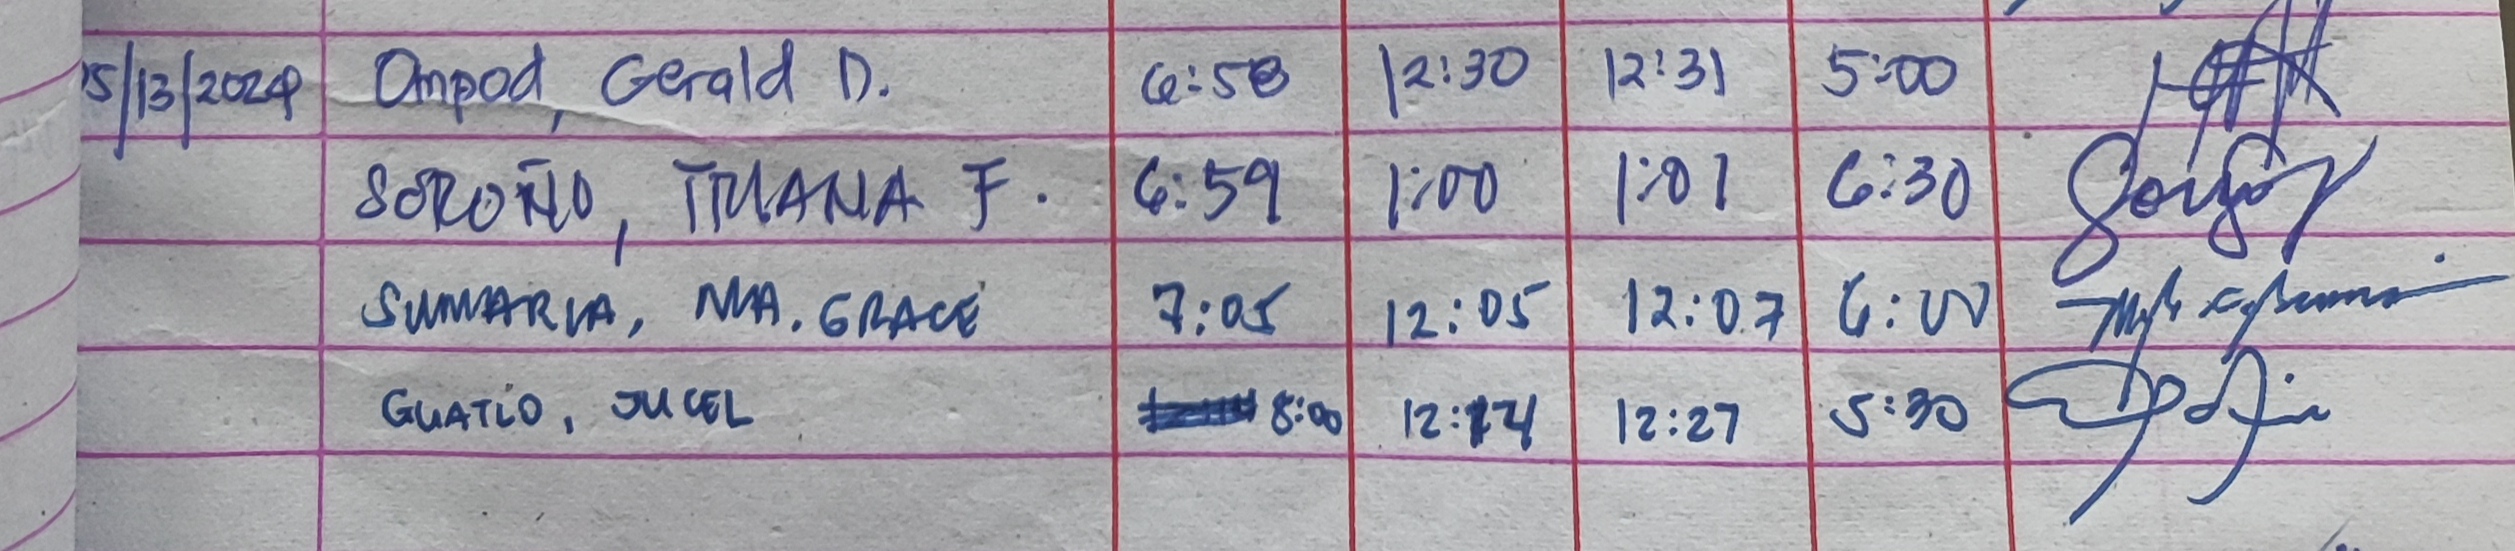 5/13/2024 Ompod, Gerald D. 6:58 12:30 12:31 5:00
SOROÑO, TRIANA F. 6:59 1:00 1:01 6:30
SUMARIA, MA. GRACE 7:05 12:05 12:07 6:00
GUATLO, JUCEL 8:00 12:14 12:27 5:30